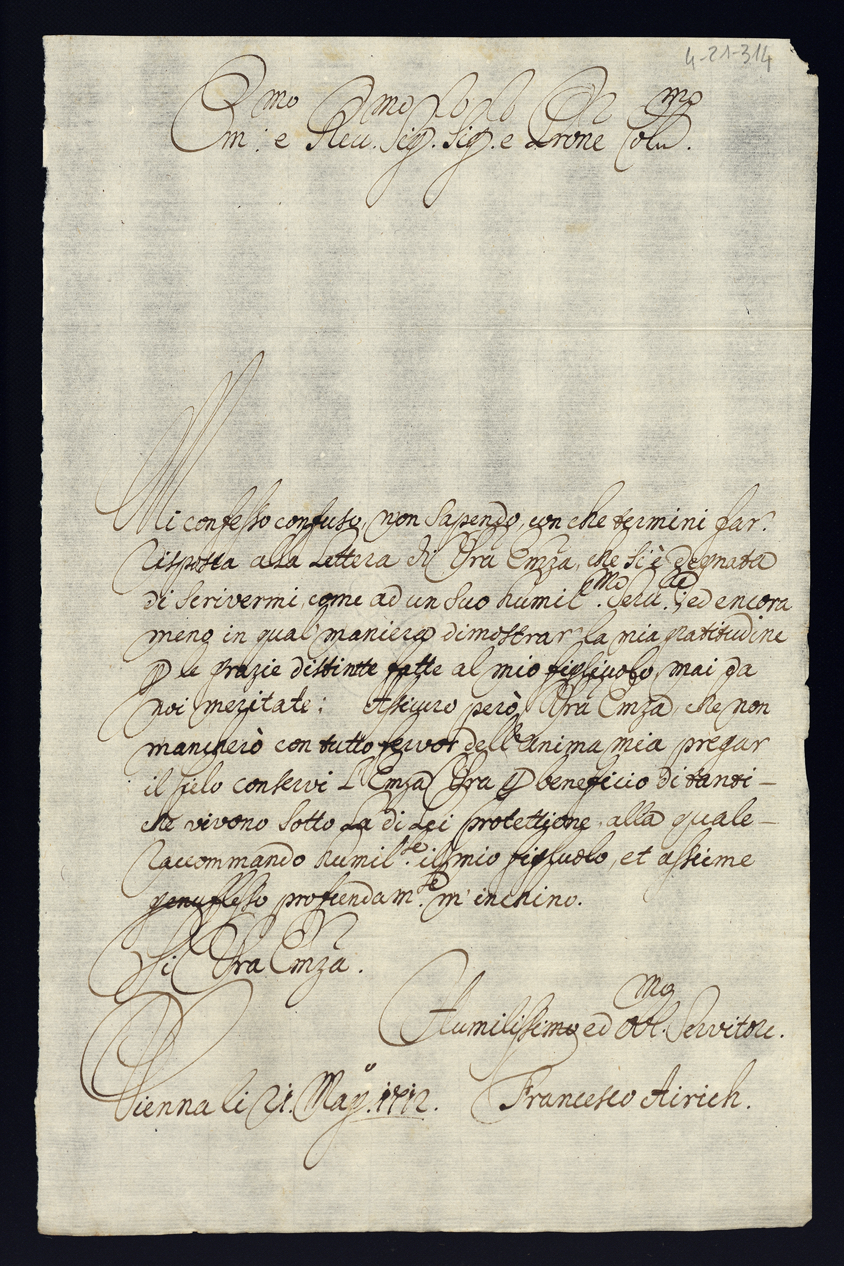 4-21-314
Em.mo e Reu.mo Sig. Sig. e Prone Colm.mo
Mi confesso confuso, non sapendo, con che termini far
risposta alla Lettera di Vra Emza, che si è degnata
di scrivermi, come ad un suo humil.mo seru.; ed encora
meno in qual maniera dimostrar la mia gratitudine
p le grazie distinte fatte al mio figliuolo, mai da
noi meritate: Assicuro però, Vra Emza, che non
mancherò con tutto fervor dell'anima mia pregar
il Cielo conservi L'Emza Vra p beneficio di tanti
che vivono sotto La di Lei protettione, alla quale
raccommando humil.te il mio figluolo, et assieme
genuflesso profundam.te m'inchino.
Di Vra Emza.
Humilissimo ed Obl.mo Servitore.
Vienna li 21. Mag.o 1712. Francesco Airich.